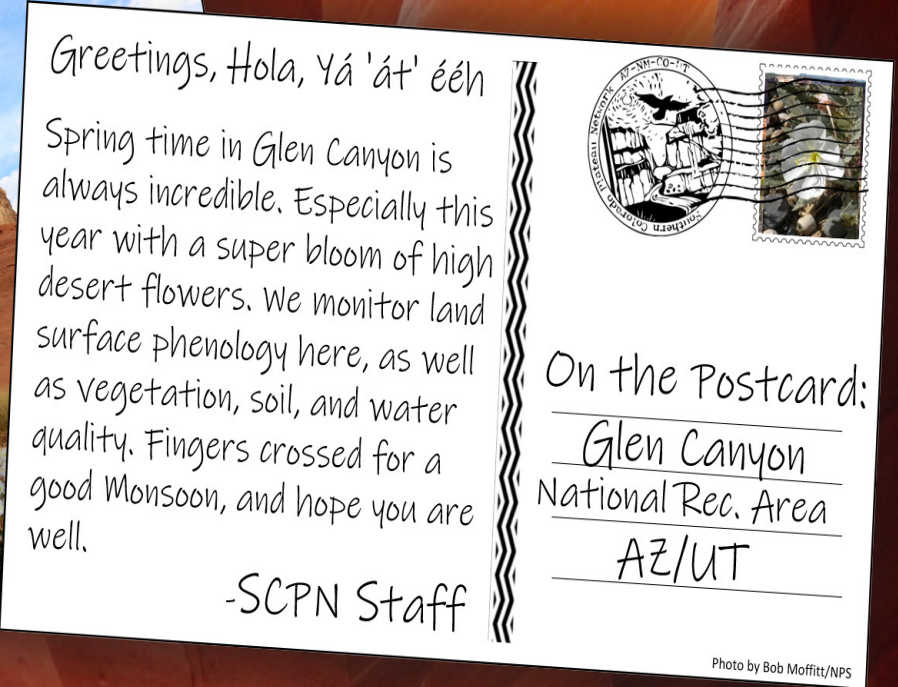 Greetings, Hola, Yá 'át' ééh
Spring time in Glen Canyon is
always incredible. Especially this
year with a super bloom of high
desert flowers. We monitor land
surface phenology here, as well
as vegetation, soil, and water
quality. Fingers crossed for a
good Monsoon, and hope you are
well.
-SCPN Staff
AZ-NM-CO-UT
Southern Colorado Plateau Network
On the Postcard:
Glen Canyon
National Rec. Area
AZ/UT
Photo by Bob Moffitt/NPS